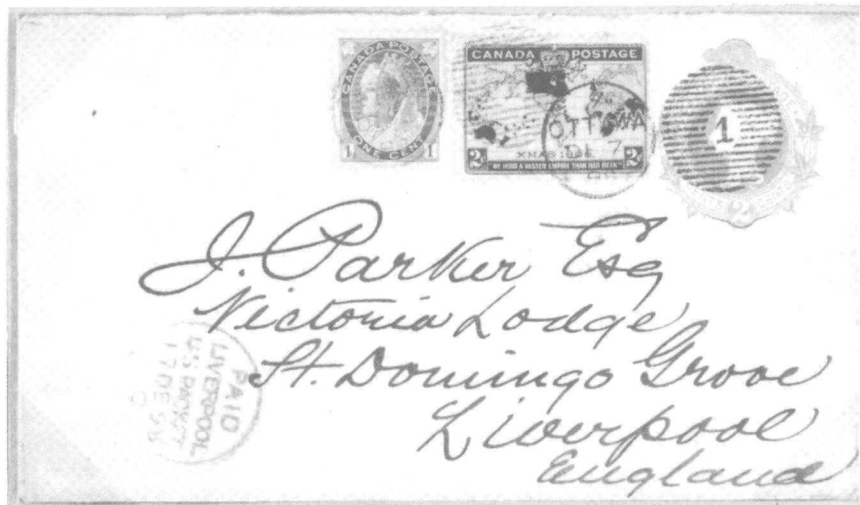 CANADA POSTAGE
1 ONE CENT 1
CANADA POSTAGE
XMAS 1898
2 2
"WE HOLD A VASTER EMPIRE THAN HAS BEEN"
OTTAWA
7
1
2
J. Parker Esq
Victoria Lodge
St. Domingo Grove
Liverpool
England
PAID
LIVERPOOL
U.S. PACKET
17 DE 98